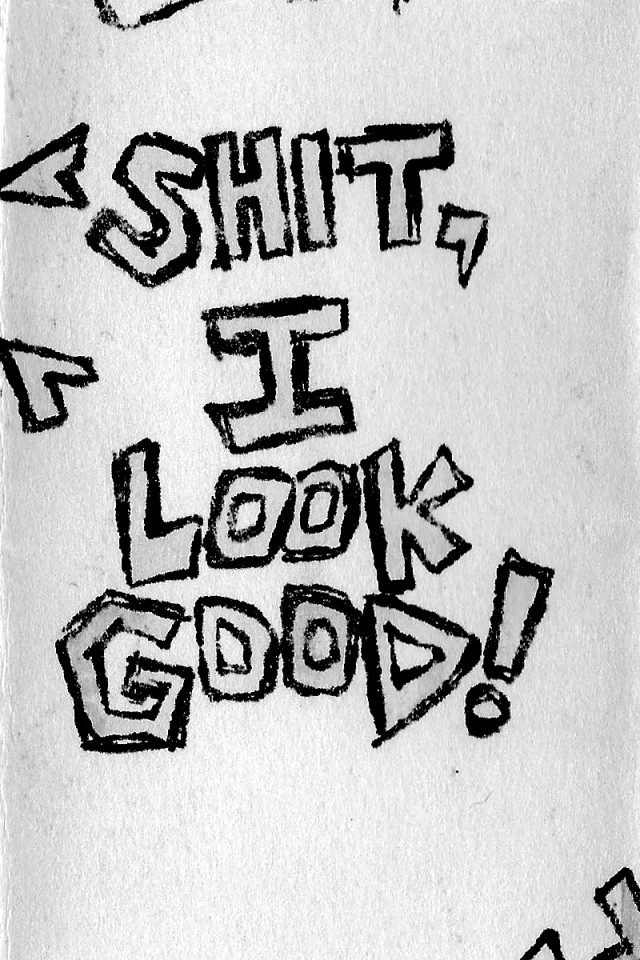 SHIT,
I
LOOK
GOOD!